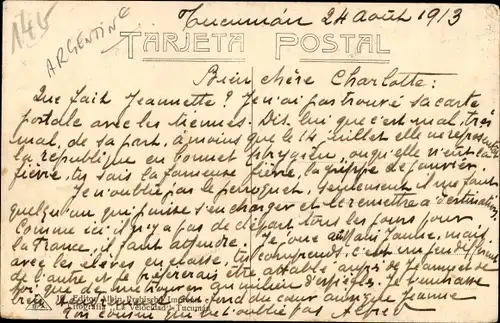 145
ARGENTINE
Tucumán 24 Août 1913
TARJETA POSTAL
Bien chère Charlotte:
Que fait Jeannette? Je n'ai pas trouvé sa carte
postale avec les tiennes. Dis lui que c'est mal, très
mal, de sa part, à moins que le 14 juillet elle ne
la République en bonnet phrygien, ou qu'elle n'eût la
fièvre, tu sais la fameuse fièvre, la grippe de janvier.
Je n'oublie pas le perroquet. Seulement il me faut
quelqu'un qui puisse s'en charger et le remettre à destination.
Comme ici il n'y a pas de départ tous les jours pour
la France, il faut attendre. Je joue aussi
avec les élèves en classe, tu comprends, c'est un peu different
de l'autre je préférerais être attablé auprès de Jeanne et de
toi, que de me trouver au milieu
Editor Albin
Tipografía La Velocidad Tucumán
fond du cœur ainsi que Jeanne
Ton cousin qui ne t'oublie pas